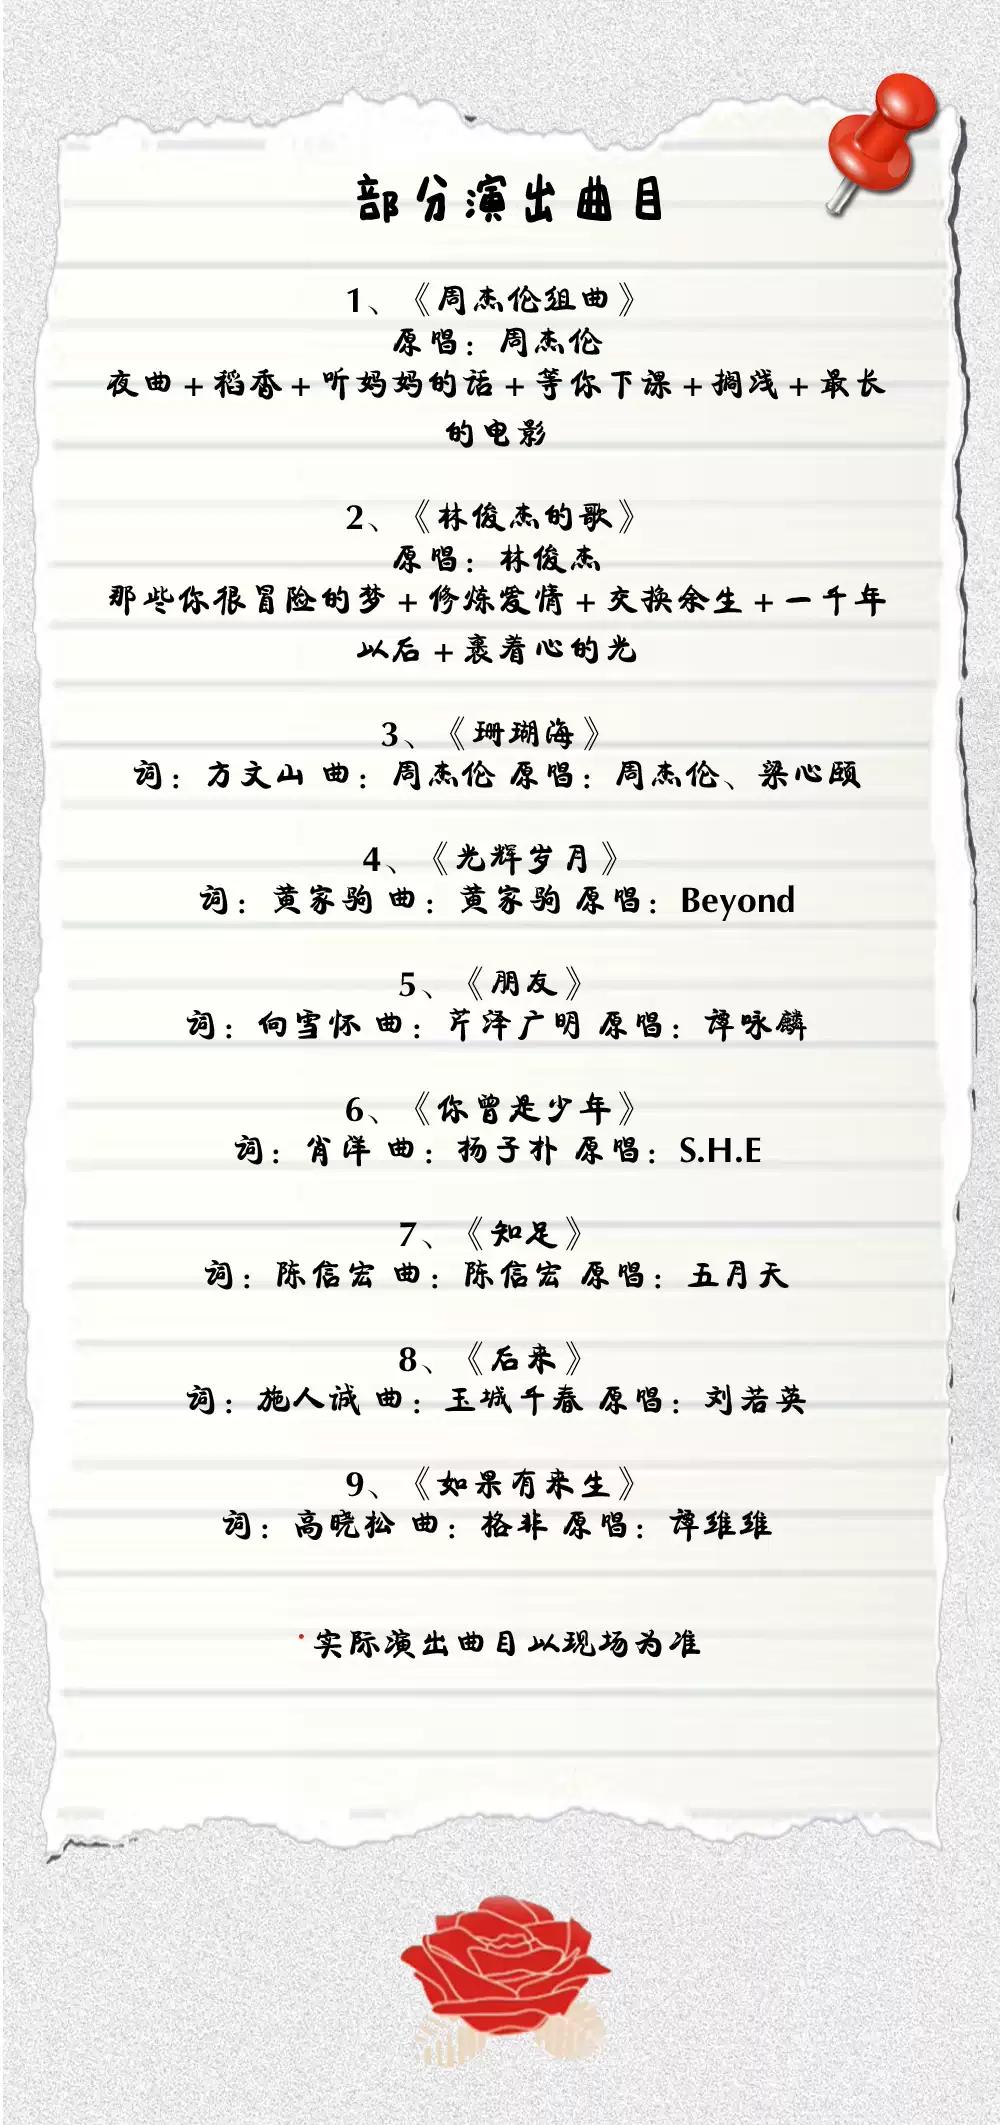 部分演出曲目
1、《周杰伦组曲》
原唱：周杰伦
夜曲+稻香+听妈妈的话+等你下课+搁浅+最长
的电影
2、《林俊杰的歌》
原唱：林俊杰
那些你很冒险的梦+修炼爱情+交换余生+一千年
以后+裹着心的光
3、《珊瑚海》
词：方文山 曲：周杰伦 原唱：周杰伦、梁心颐
4、《光辉岁月》
词：黄家驹 曲：黄家驹 原唱：Beyond
5、《朋友》
词：向雪怀 曲：芹泽广明 原唱：谭咏麟
6、《你曾是少年》
词：肖洋 曲：杨子朴 原唱：S.H.E
7、《知足》
词：陈信宏 曲：陈信宏 原唱：五月天
8、《后来》
词：施人诚 曲：玉城千春 原唱：刘若英
9、《如果有来生》
词：高晓松 曲：格非 原唱：谭维维
实际演出曲目以现场为准